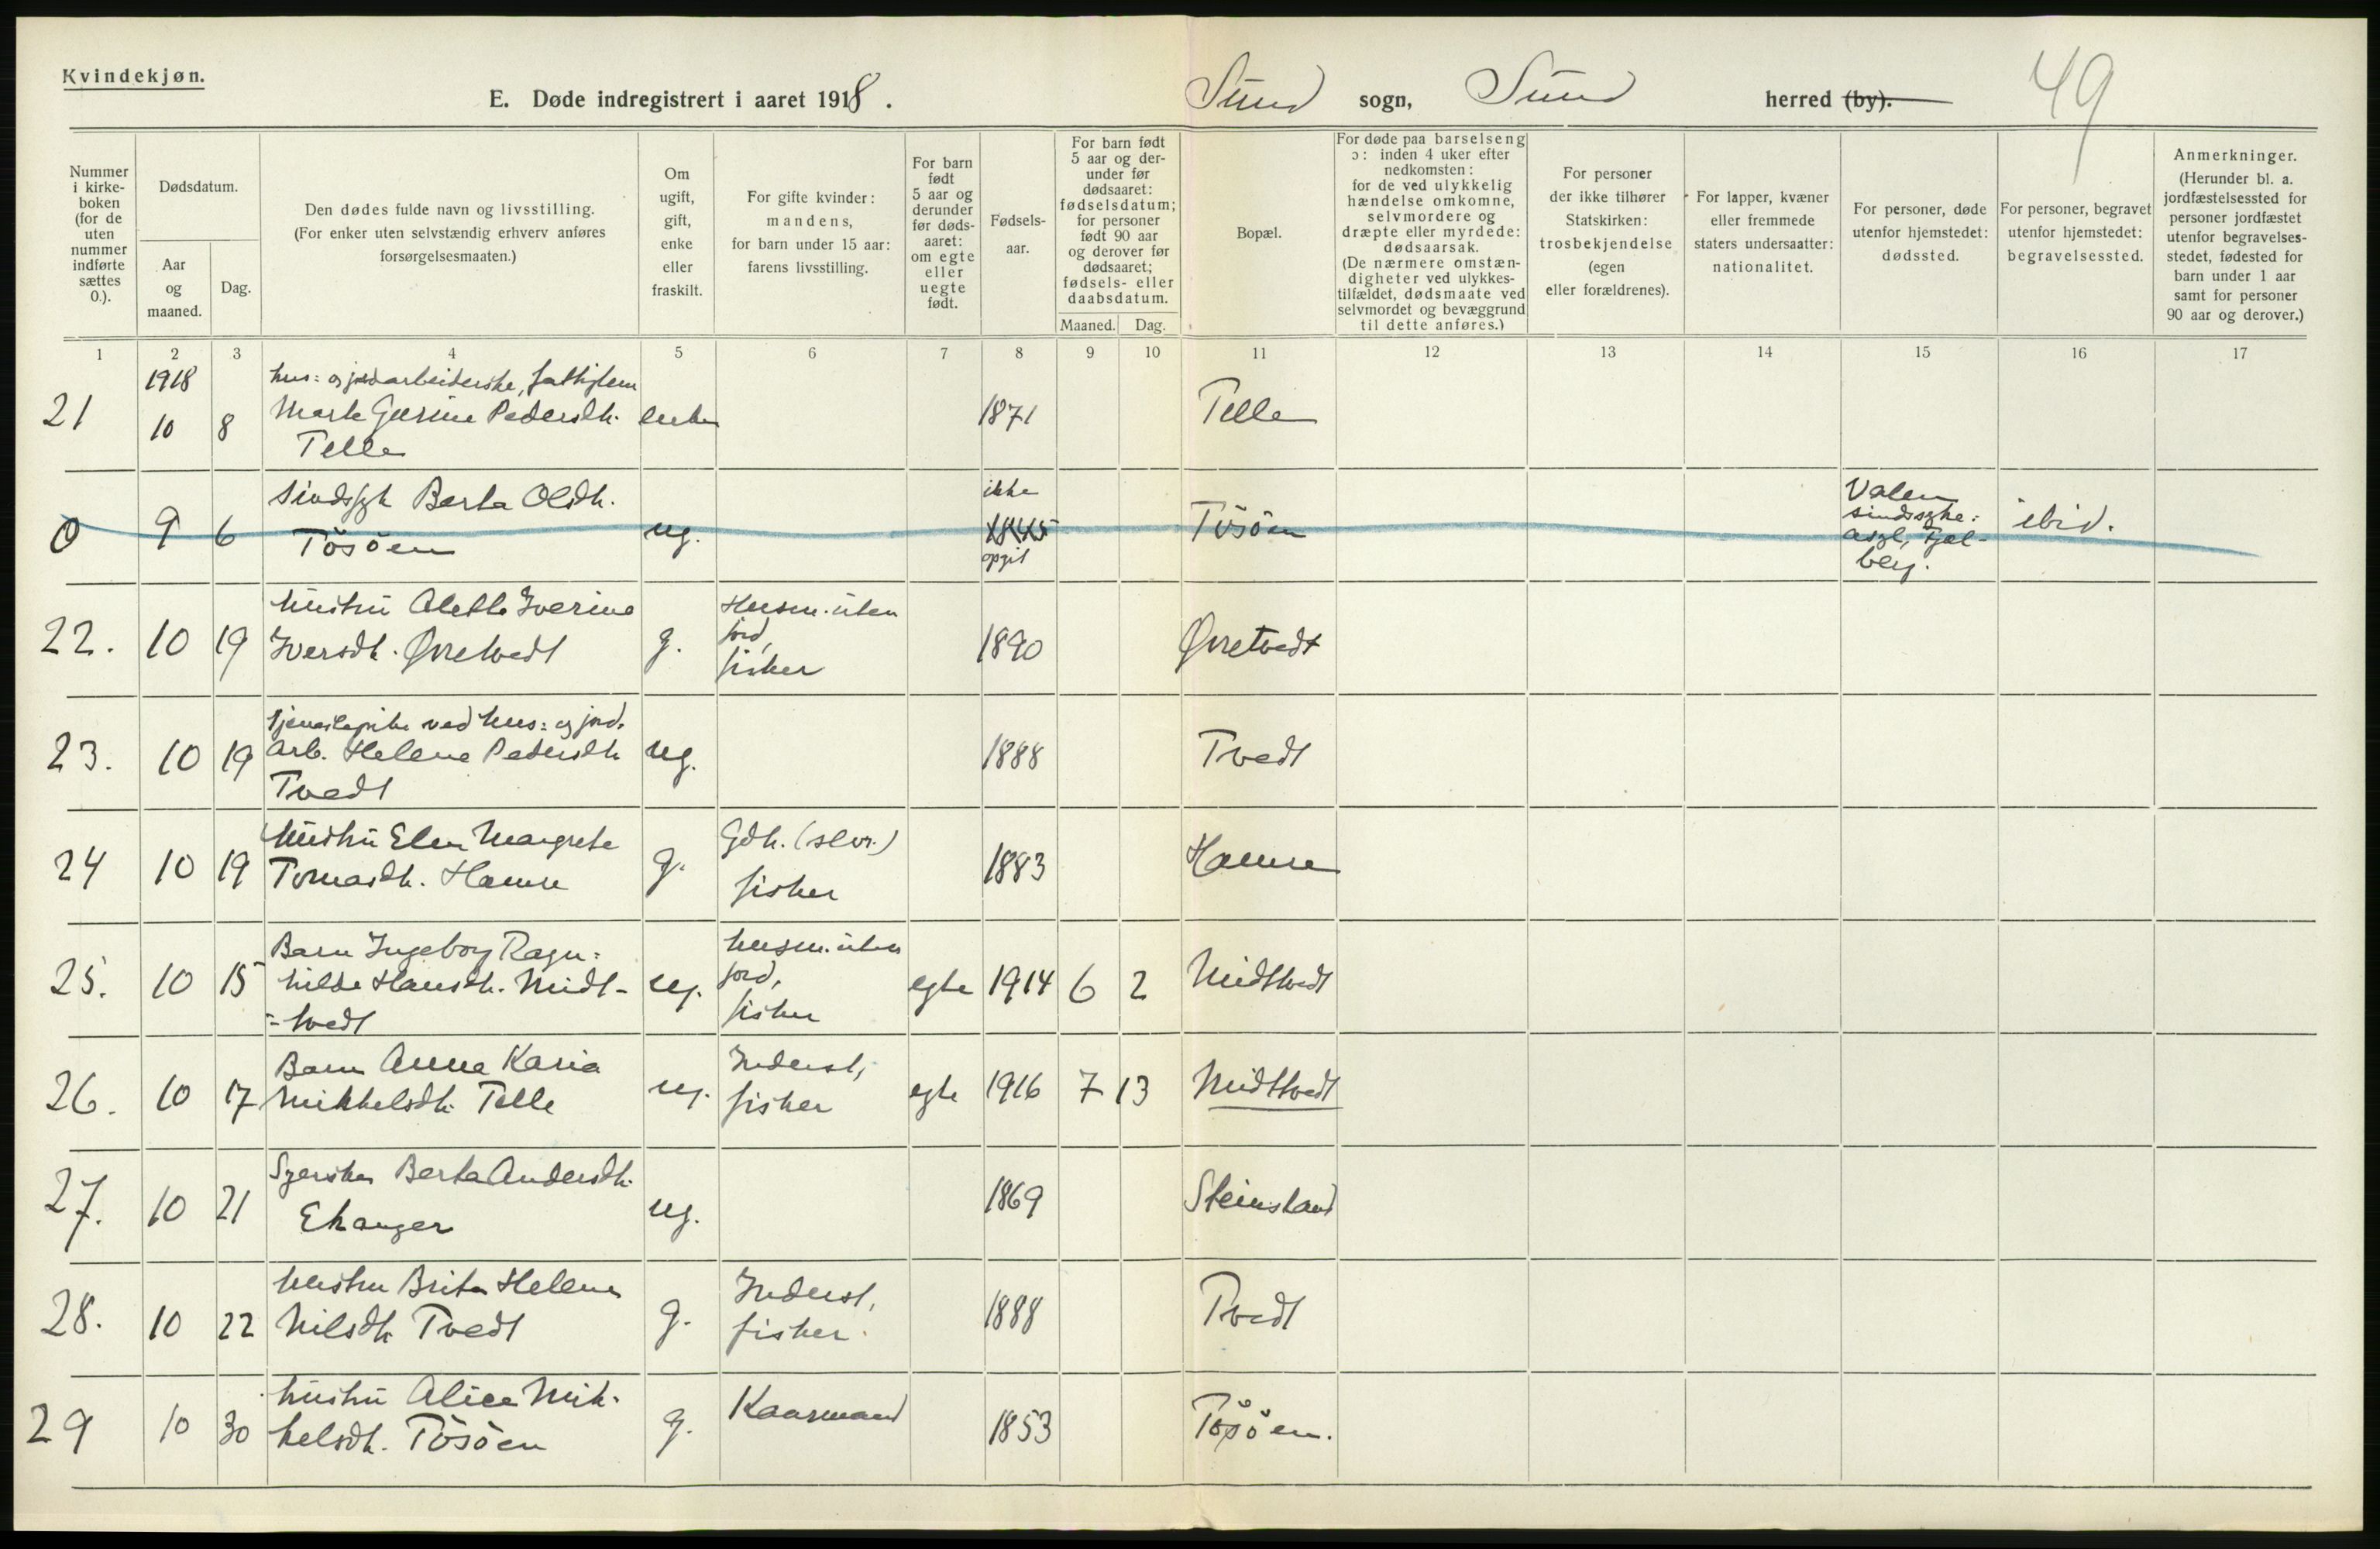 Kvindekjøn.
E. Døde indregistrert i aaret 1918.
Sund sogn, Sund herred (by).
49
Nummer i kirke-boken (for de uten nummer indførte sættes 0.).
Dødsdatum.
Aar og maaned.
Dag.
Den dødes fulde navn og livsstilling.
(For enker uten selvstændig erhverv anføres forsørgelsesmaaten.)
Om ugift, gift, enke eller fraskilt.
For gifte kvinder: mandens, for barn under 15 aar: farens livsstilling.
For barn født 5 aar og derunder før døds-aaret: om egte eller uegte født.
Fødsels-aar.
For barn født 5 aar og der-under før dødsaaret: fødselsdatum; for personer født 90 aar og derover før dødsaaret; fødsels- eller daabsdatum.
Maaned. Dag.
Bopæl.
For døde paa barselseng ɔ: inden 4 uker efter nedkomsten: for de ved ulykkelig hændelse omkomne, selvmordere og dræpte eller myrdede: dødsaarsak.
(De nærmere omstæn-digheter ved ulykkes-tilfældet, dødsmaate ved selvmordet og bevæggrund til dette anføres.)
For personer der ikke tilhører Statskirken: trosbekjendelse (egen eller forældrenes).
For lapper, kvæner eller fremmede staters undersaatter: nationalitet.
For personer, døde utenfor hjemstedet: dødssted.
For personer, begravet utenfor hjemstedet: begravelsessted.
Anmerkninger.
(Herunder bl. a. jordfæstelsessted for personer jordfæstet utenfor begravelses-stedet, fødested for barn under 1 aar samt for personer 90 aar og derover.)
1 2 3 4 5 6 7 8 9 10 11 12 13 14 15 16 17
1918
hus= og jordarbeiderske, fattiglem
21 10 8 Marte Gurine Pedersdtr. enke 1871 Telle
Telle
Sindssyk Berta Olsdtr. ikke
0 9 6 Tösöen ug. 1845 Tösöen
opgit
Valen sindssyke= asyl, Fjel-berg.
ibid.
Hustru Alette Iverine Husm. uten
22. 10 19 Iversdtr. Øvretvedt g. jord, fisker 1890 Øvretvedt
Tjenestepike ved hus= og jord.
23. 10 19 arb. Helene Pedersdtr. ug. 1888 Tvedt
Tvedt
Hustru Elen Margrete Gdbr. (selv.)
24 10 19 Tomasdtr. Hamre g. fisker 1883 Hamre
Barn Ingeborg Ragn= husm. uten
25. 10 15 hilda Hansdtr. Midt- ug. jord, egte 1914 6 2 Midttvedt
=tvedt fisker
Barn Anna Karia Inderst,
26. 10 17 Mikkelsdtr. Telle ug. fisker egte 1916 7 13 Midttvedt
Syerske Berta Andersdtr.
27. 10 21 Ekanger ug. 1869 Steinsland
Hustru Brita Helene Inderst,
28. 10 22 Nilsdtr. Tvedt g. fisker. 1888 Tvedt
Hustru Alice Mik-
29 10 30 kelsdtr. Tösöen g. Kaarmand 1853 Tösöen.